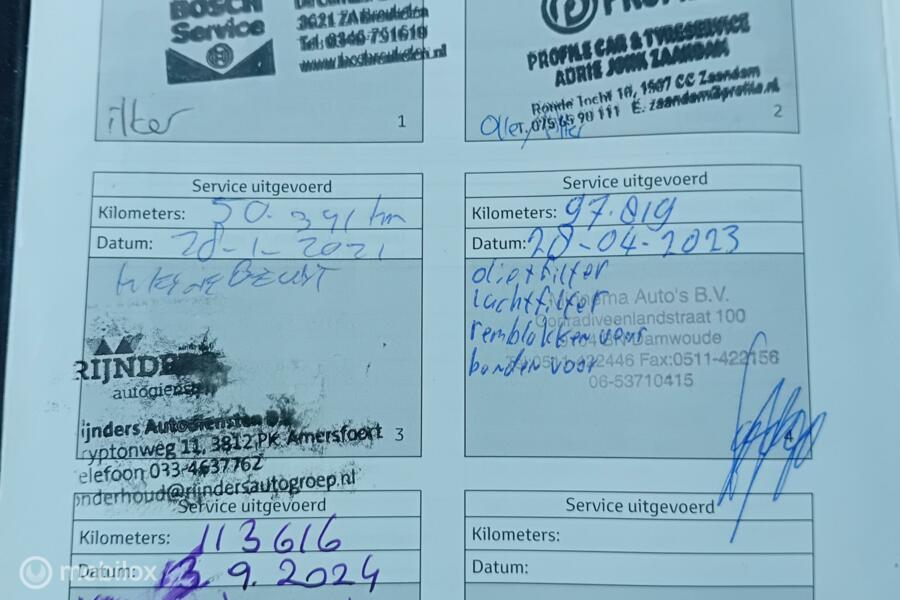 BOSCH
Service
3621 ZA Breukelen
Tel: 0346 791619
www.boschbreukelen.nl
filter
1
PROFILE CAR & TYRESERVICE
ADRIE JONK ZAANDAM
Ronde Tocht 18, 1507 CC Zaandam
T. 075 65 90 111 E. zaandam@profile.nl
2
Service uitgevoerd
Kilometers: 50.391 km
Datum: 28-1-2021
KLEINE BEURT
RIJND
autodiensten
ijnders Autodiensten B.V.
ryptonweg 11, 3812 PK Amersfoort
elefoon 033-4637762
onderhoud@rijndersautogroep.nl
3
Service uitgevoerd
Kilometers: 97.819
Datum: 28-04-2023
olietfilter
luchtfilter
remblokken voor
banden voor
ma Auto's B.V.
Conradiveenlandstraat 100
Damwoude
0511-422446 Fax:0511-422156
06-53710415
4
Service uitgevoerd
Kilometers: 113616
Datum: 13.9.2024
Service uitgevoerd
Kilometers:
Datum:
mabilox